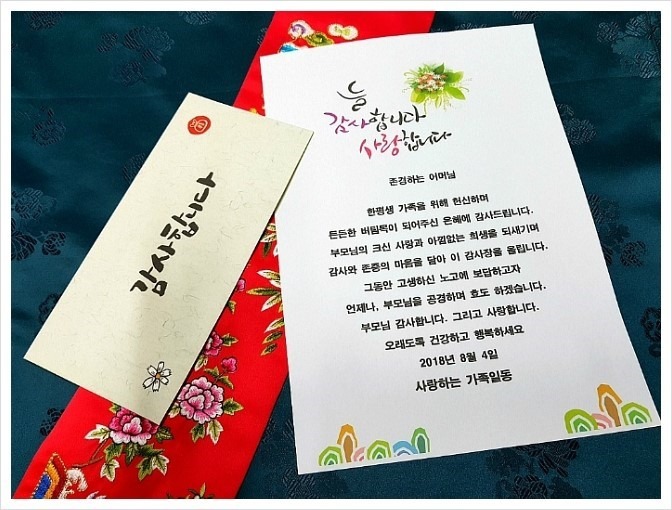 감사합니다
늘
감사합니다
사랑합니다
존경하는 어머님
한평생 가족을 위해 헌신하며
든든한 버팀목이 되어주신 은혜에 감사드립니다.
부모님의 크신 사랑과 아낌없는 희생을 되새기며
감사와 존중의 마음을 담아 이 감사장을 올립니다.
그동안 고생하신 노고에 보답하고자
언제나, 부모님을 공경하며 효도 하겠습니다.
부모님 감사합니다. 그리고 사랑합니다.
오래도록 건강하고 행복하세요
2018년 8월 4일
사랑하는 가족일동